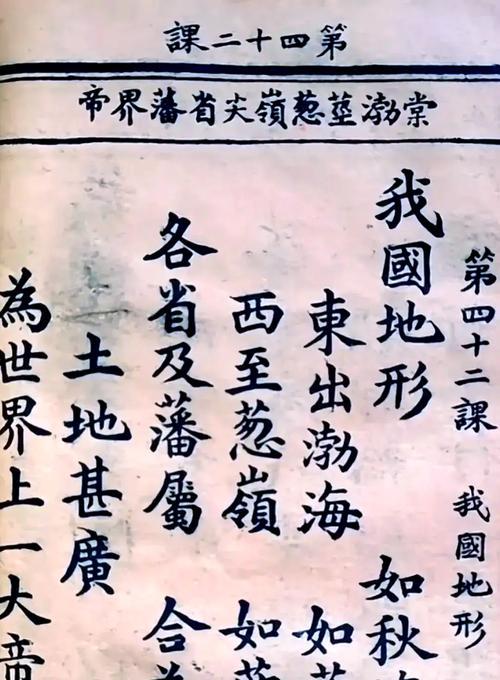 第四十二課
棠渤莖葱嶺尖省藩界帝
第四十二課 我國地形
我國地形 如秋
東出渤海 如
西至葱嶺 如
各省及藩屬 合
土地甚廣
為世界上一大帝